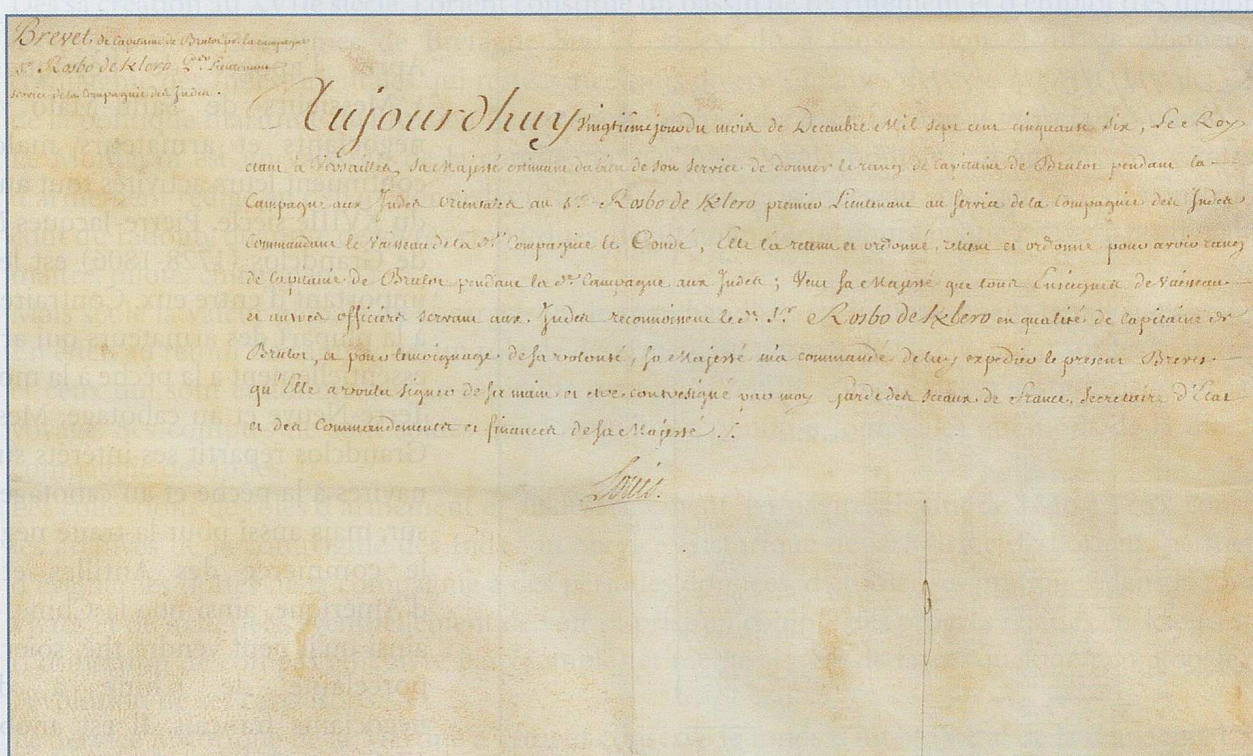 Brevet de Capitaine de Brulot pr. la campagne
Sr. Rosbo de Klero per. Lieutenant
service de la Compagnie des Indes.
Aujourdhuy vingtième jour du mois de Decembre Mil sept cent cinquante six, Le Roy
etant à Versailles, Sa Majesté estimant du bien de son service de donner le rang de Capitaine de Brulot pendant la
Campagne aux Indes Orientales au Sr. Rosbo de Klero premier Lieutenant au service de la Compagnie des Indes
Commandant le Vaisseau de la de. Compagnie le Condé, Elle l'a retenu et ordonné, retient et ordonne pour avoir rang
de Capitaine de Brulot pendant la de. Campagne aux Indes; Veut sa Majesté que tous Enseignes de Vaisseau
et autres officiers servant aux Indes reconnoissent le d. Sr. Rosbo de Klero en qualité de Capitaine de
Brulot, et pour temoignage de sa volonté, sa Majesté m'a commandé de luy expedier le present Brevet
qu'Elle a voulu signer de sa main et etre contresigné par moy garde des sceaux de France, Secretaire d'Etat
et des Commandements et finances de sa Majesté ./.
Louis.